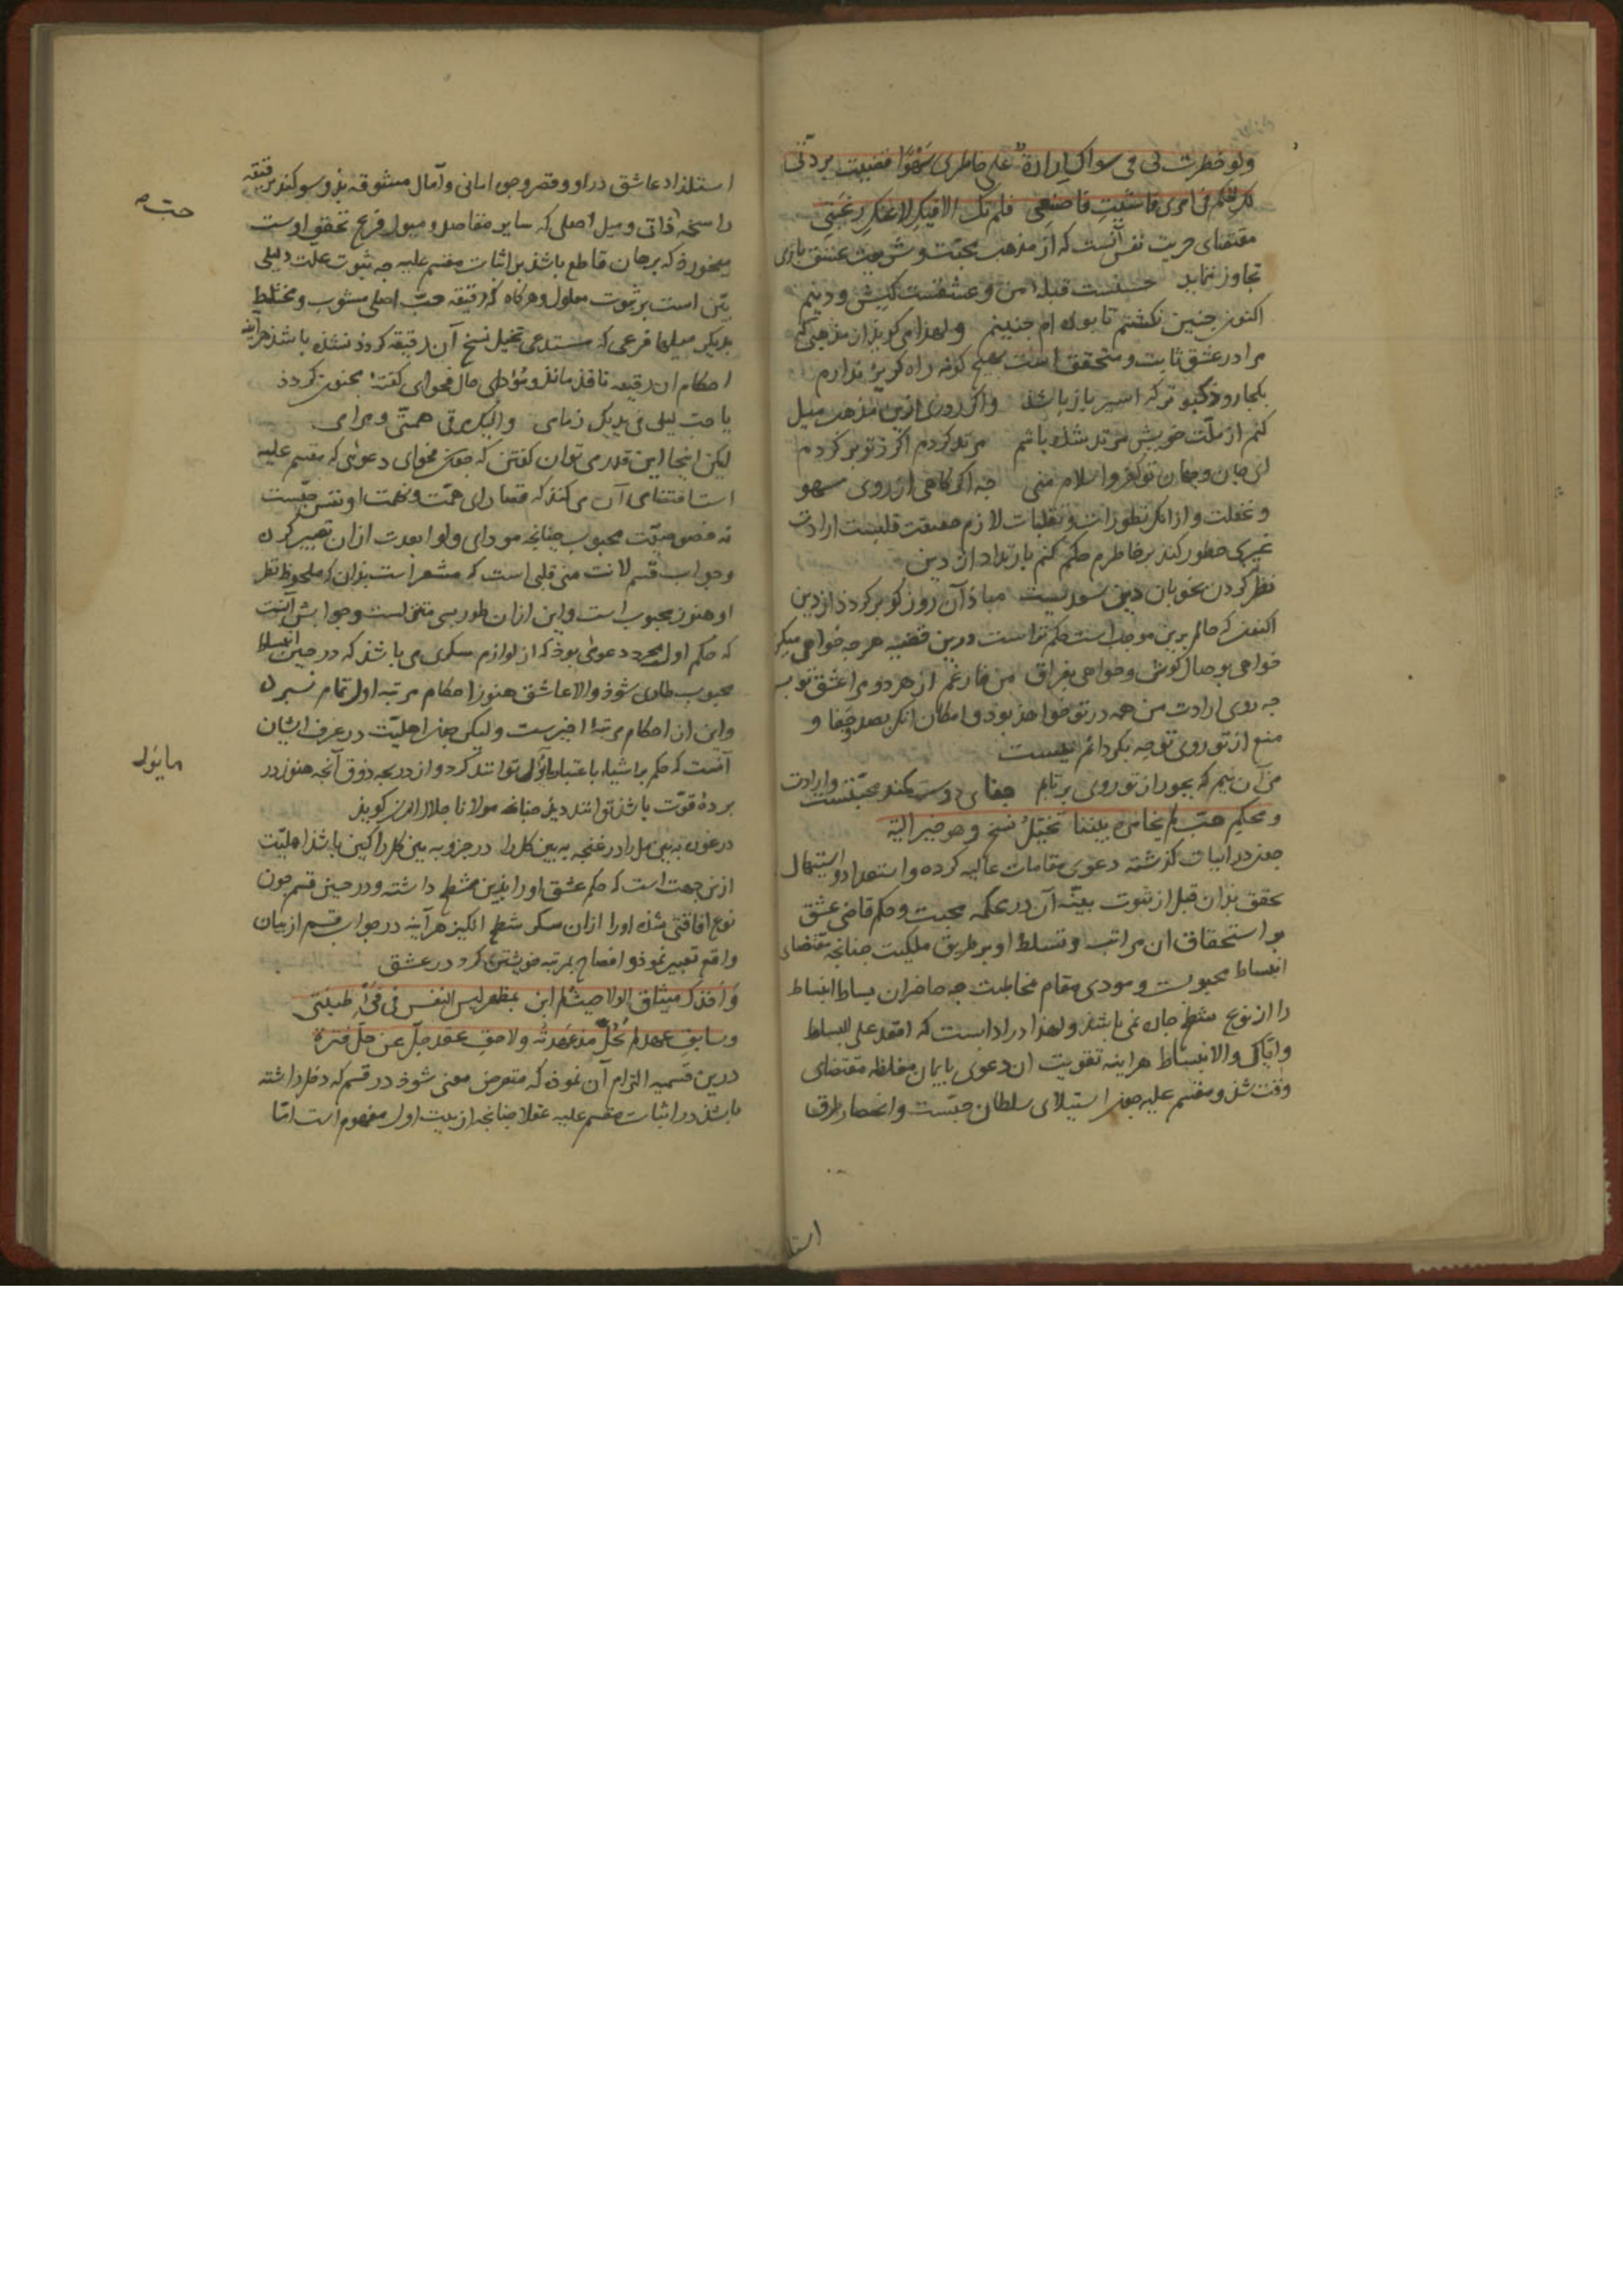 ولو خطرت لی فی سواک ارادة علی خاطری سهوا قضیت بردتی
لک الحکم فی امری فما شئت فاصنعی فلم تک الا فیک لا عنک رغبتی
مقتضای حریت نفس آنست که از مذهب محبت و شریعت عشق بازی
تجاوز ننماید حسنست قبله من و عشقست کیش و دینم
اکنون جنین نکشتم تا بوده ام جنینم ولهذا می کوید از مذهبی که
مرا در عشق ثابت و متحقق است بهیچ کونه راه کریز ندارم
بکجا روذ کبوتر که اسیر باز باشد واکر روزی ازین مذهب میل
کنم از ملت خویش مرتد شده باشم مرتد کردم اکر ز تو برکردم
ای جان و جهان تو کفر و اسلام منی جه اکر کاهی از روی سهو
و غفلت و از انک تطورات و تقلبات لازم حقیقت قلبست ارادت
غیری خطور کند بر خاطرم حکم کنم بارتداد از دین
نظر کردن بخوبان دین سعدیست مباذ آن روز کو برکردد از دین
اکنون که حالم برین موجب است حکم تراست درین قضیه هرجه خواهی میکن
خواهی بوصال کوش و خواهی بفراق من فارغم از هر دو مرا عشق تو بس
جه روی ارادت من همه در تو خواهد بود و امکان آنک بصد جفا و
منع از تو روی توجه بکردانم نیست
من آن نیم که بجور از تو روی برتابم جفای دوست کمند محبتست وارادت
ومحکم حب لم یخامره بیننا تخیل نسخ وهو خیر الیة
جون در ابیات کذشته دعوی مقامات عالیه کرده واستعداد و استیهال
تحقق بدان قبل از ثبوت بینه آن در محکمه محبت و حکم قاضی عشق
بر استحقاق ان مراتب و تسلط او بر طریق ملکیت جنانجه مقتضای
انبساط محبوبست و مودی مقام مخاطبت جه حاضران بساط انبساط
را از نوع شطح جاره نمی باشد ولهذا در اداب است که اقعد علی البساط
وایاک والانبساط هراینه تقویت ان دعوی بایمان مغلظه مقتضای
وقت شد و مقسم علیه جون استیلای سلطان حبست و انحصار طرق
استلذاذ عاشق در او و قصر وجوه امانی و آمال مشوقه بذو سوکند برقیقه
راسخه ذاتی و میل اصلی که سایر مقاصد و میول فرع تحقق اوست
میخورد که برهان قاطع باشد بر اثبات مقسم علیه جه ثبوت علت دلیلی
بین است بر ثبوت معلول و هرکاه که رقیقه حب اصلی مشوب و مختلط
بدیکر میلهای فرعی که مستدعی تخیل نسخ آن رقیقه کردد نشده باشد هراینه
احکام ان رقیقه نافذ ماند و مودای حال فحوای کفته مجنون کردد
لیکن اینجا این قدر می توان کفتن که جون فحوای دعوئی که مقسم علیه
است اقتضای آن می کند که قصارای همت و نهمت او نفس حبست
نه خصوصیت محبوب جنانجه مودای ولو ابعدت ازان تعبیر کرد
وجواب قسم لانت منی قلبی است که مشعر است بذان که ملحوظ نظر
او هنوز محبوب است و این ازان طور بسی متنزلست وجوابش آنست
که حکم اول مجرد دعوئی بوذ که از لوازم سکری می باشد که در حین انبساط
محبوب طاری شود والا عاشق هنوز احکام مرتبه اول تمام نسبرد
واین از احکام مرتبه اخیرست ولیکن جون اهلیت در عرف ایشان
آنست که حکم بر اشیاء باعتبار مآل توانند کرد و از دریجه ذوق آنجه هنوز در
برده قوت باشد توانند دید جنانجه مولانا جلال الدین کوید
در غوره ببین مل را در غنجه ببین کل را در جزو ببین کل را کین باشد اهلیت
ازین جهت است که حکم عشق او را بذین شطح داشته و در حین قسم جون
نوع افاقتی شده او را ازان سکر شطح انکیز هرآینه در جواب قسم از بیان
واقع تعبیر نموذ و افصاح بمرتبه خویشتن کرد در عشق
واخذک میثاق الولا حیث لم ابن بمظهر لبس النفس فی فیء طینتی
وسابق عهد لم یحل مذ عهدته ولاحق عقد جل عن حل فترة
درین قسمیه التزام آن نموذ که متعرض معنی شوذ در قسم که دخل داشته
باشد در اثبات مقسم علیه عقلا جنانجه از بیت اول مفهوم است اما